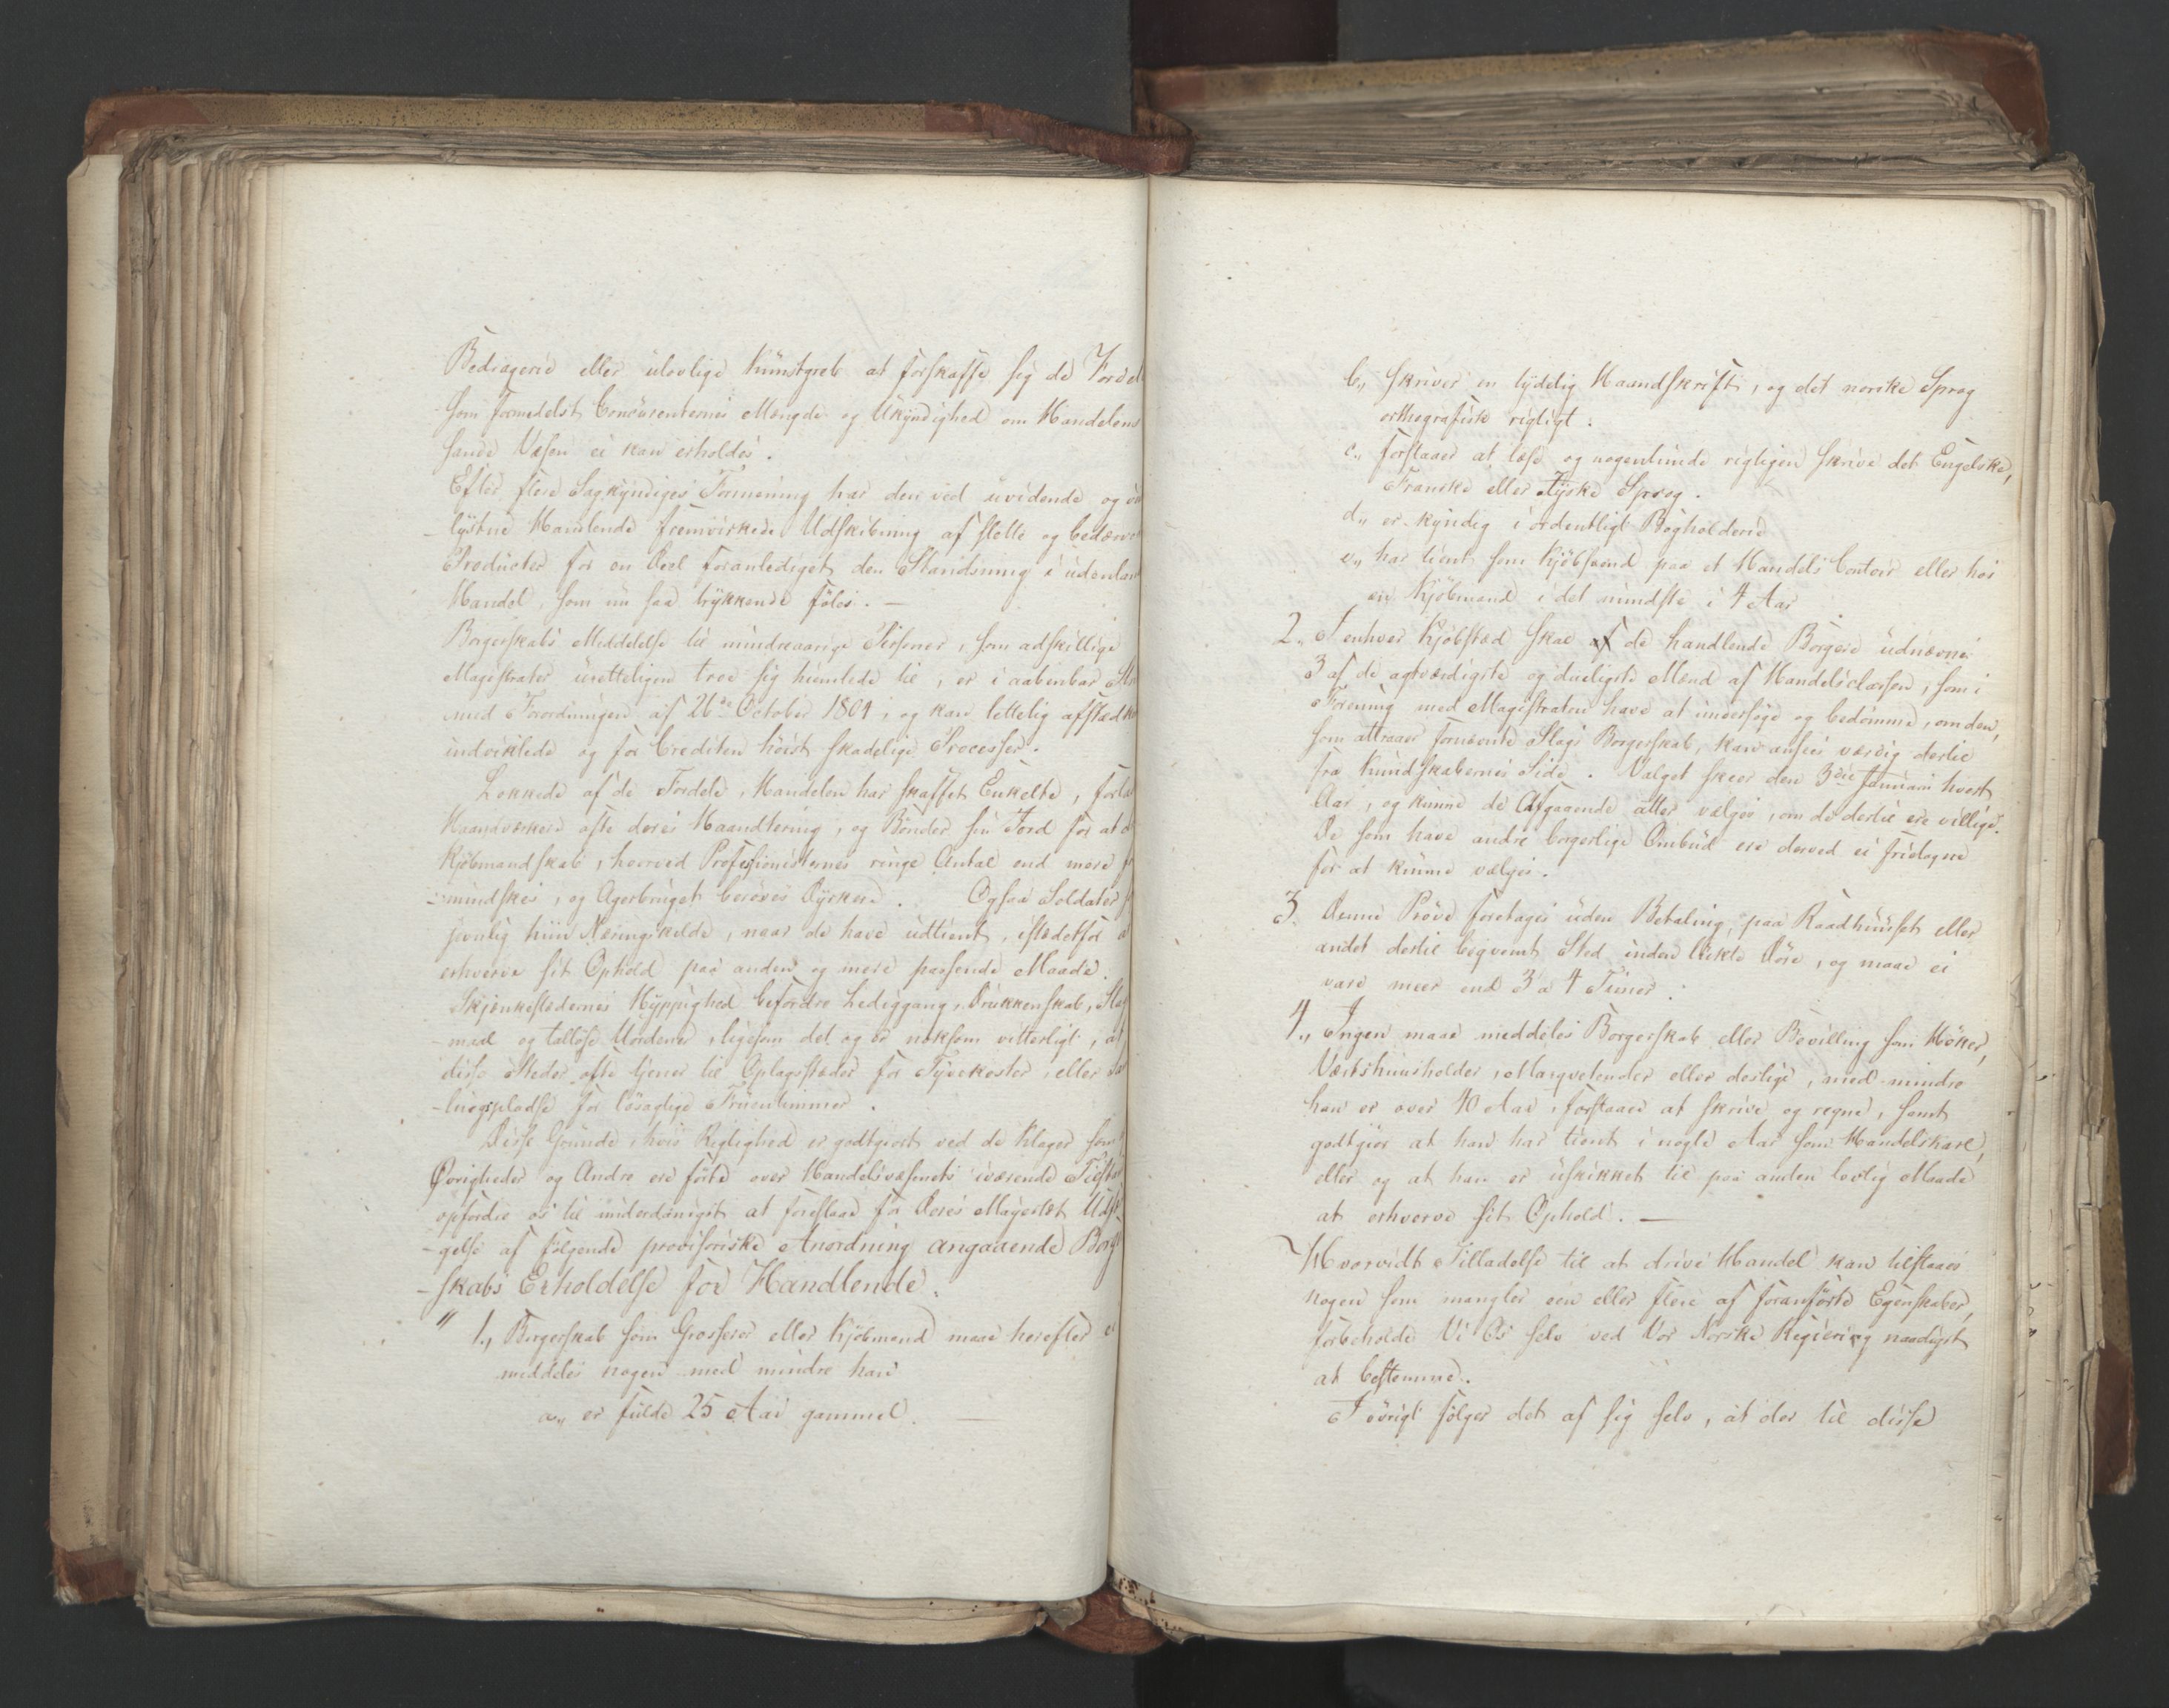 Bedragerie eller ulovlige Kunstgreb at forskaffe sig de Fordel
som formedelst Concurenternes Mængde og Ukyndighed om Handelens
sande Væsen ei kan erholdes.
Efter flere Sagkyndiges Formening har den ved uvidende og
lystne Handlende fremvirkede Udskibning af slette og bedærve
Producter for en Deel foranlediget den Standsning i udenlan
Handel, som nu saa trykkende føles. —
Borgerskabs Meddelelse til mindreaarige Personer, som adskillige
Magistrater uretteligen troe sig hiemlede til, er i aabenbar Str
med Forordningen af 26de October 1804, og kan lettelig afstedko
indviklede og for Crediten høist skadelige Processer.
Lokkede af de Fordele, Handelen har skaffet Enkelte, forla
Haandværkere ofte deres Haandtering, og Bønder sin Jord for at d
Kjøbmandskab, hvorved Professionisternes ringe Antal end mere f
-mindskes, og Agerbruget berøves Dyrkere. Ogsaa Soldater s
jevnlig hiin Næringskilde, naar de have udtient, istedetfor a
erhverve sit Ophold paa anden og mere passende Maade.
Skjenkestedernes Hyppighed befordre Lediggang, Drukkenskab, Sla
-maal og talløse Uordener, ligesom det og er noksom vitterligt, at
disse Steder ofte tjener til Oplagsstæder for Tyvekoster, eller Sa
-lingsplads for løsagtige Fruentimmer.
Disse Grunde, hvis Rigtighed er godtgiort ved de Klager som
Øvrigheder og Andre ere førte over Handelsvæsenets iværende Tilsta
opfordre os til underdanigst at foreslaae for Deres Majestæt Udfær
-gelse af følgende provisoriske Anordning angaaende Borge
-skabs Erholdelse for Handlende.
" 1., Borgerskab som Grosserer eller Kjøbmand maae herefter ei
meddeles nogen med mindre han
a,, er fulde 25 Aar gammel. —
b,, skriver en tydelig Haandskrift, og det norske Sprog
orthografisk rigtigt.
c,, forstaaer at læse og nogenlunde rigtigen skrive det Engelske,
Franske eller Tyske Sprog.
d,, er kyndig i ordentligt Bogholderie
e,, har tient som Kjøbsvend paa et Handels Contoir eller hos
en Kjøbmand i det mindste i 4 Aar
2., I enhver Kjøbsted skal af de handlende Borgere udnævnes
3 af de agtværdigste og dueligste Mænd af Handelsclassen, som i
Forening med Magistraten have at undersøge og bedømme, om den,
som attraaer fornævnte Slags Borgerskab, kan ansees værdig dertil
fra Kundskabernes Side. Valget skeer den 3die Januari hvert
Aar, og kunne de Afgaaende atter vælges, om de dertil ere villige.
De som have andre borgerlige Ombud ere derved ei fritagne
for at kunne vælges.
3. Denne Prøve foretages uden Betaling, paa Raadhuuset eller
andet dertil beqvemt Sted inden lukte Døre, og maae ei
vare meer end 3 a 4 Timer.
4., Ingen maae meddeles Borgerskab eller Bevilling som Høker,
Værtshuusholder, Marqvetender eller deslige, med mindre
han er over 40 Aar, forstaaer at skrive og regne, samt
godtgiør at han har tient i nogle Aar som Handelskarl,
eller og at han er uskikket til paa anden lovlig Maade
at erhverve sit Ophold. —
Hvorvidt Tilladelse til at drive Handel kan tilstaaes
nogen som mangler een eller flere af foranførte Egenskaber,
forbeholde Vi Os selv ved Vor Norske Regiering naadigst
at bestemme.
I øvrigt følger det af sig selv, at der til disse